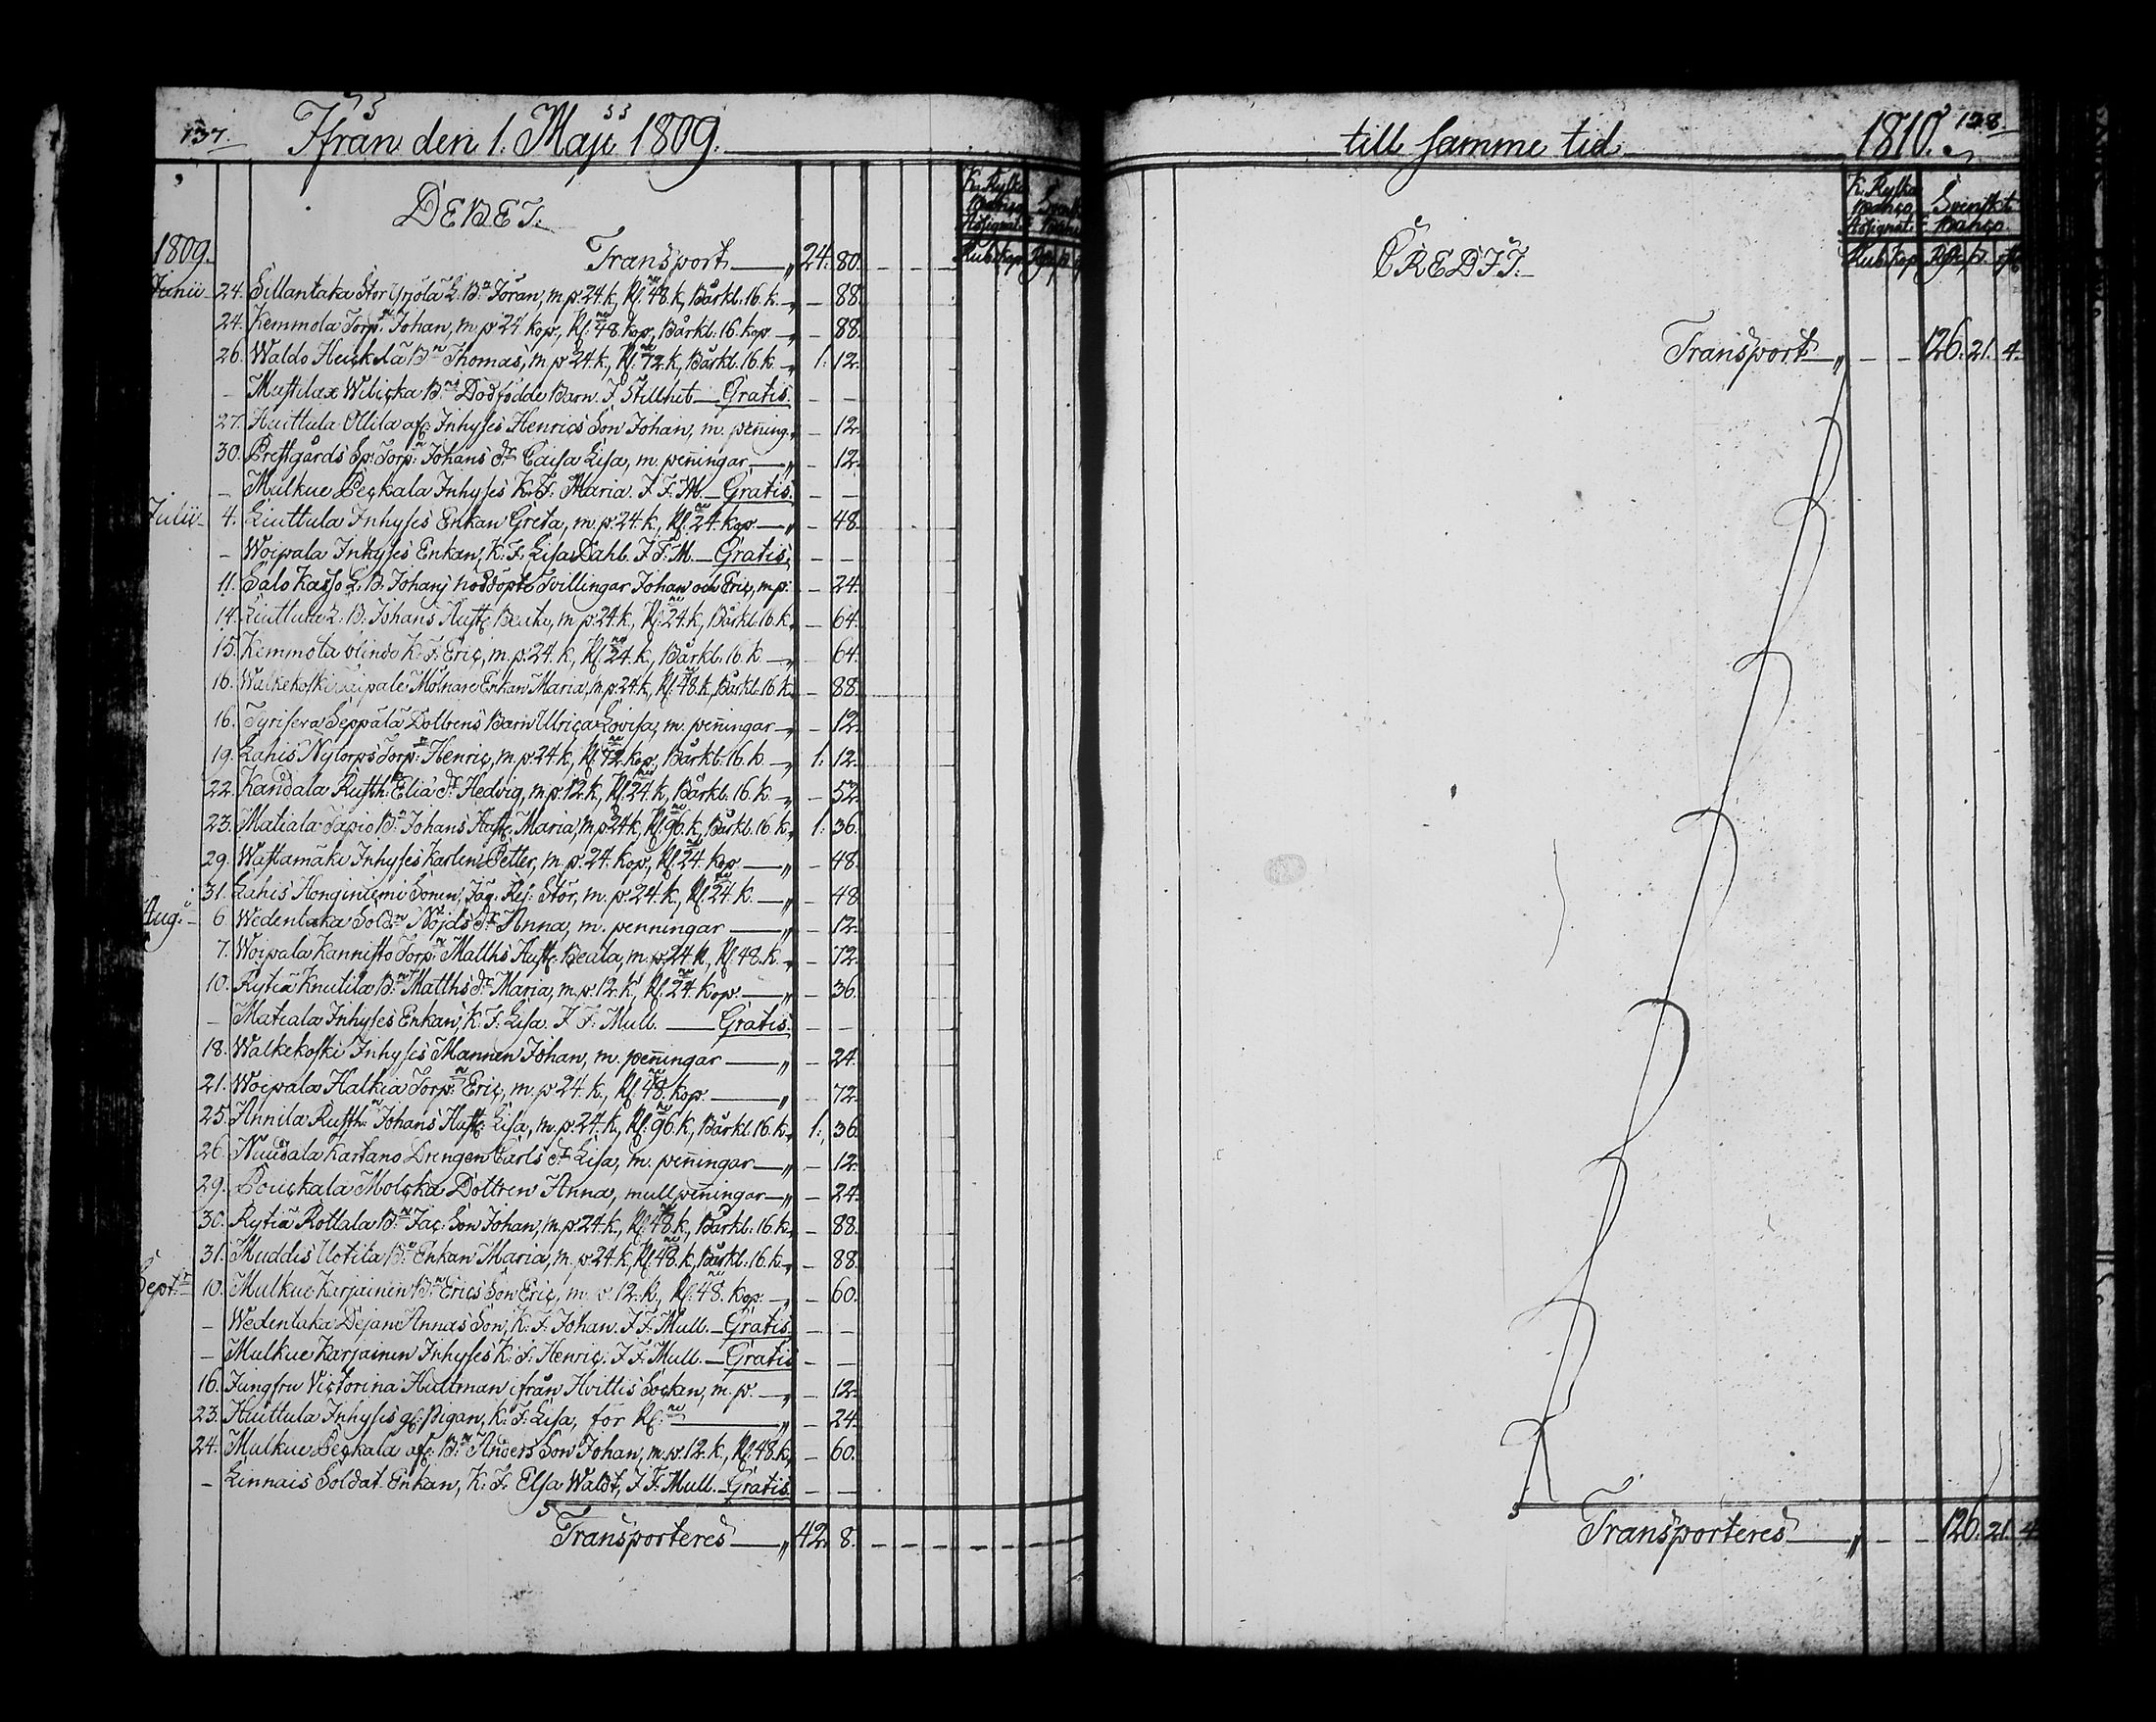 137. Ifrån den 1. Maji 1809.
DEBET.
K. Ryska Banco Assignat.
Rub. Kop.
1809. Transport — „ 24. 80.
Junii 24. Sillantaka Stor Yrjölä L. Bn Jöran, m. p. 24. k., Kl. 48. k., Bårkl. 16. k. „ — 88.
24. Kemmola Torp. Johan, m. p. 24 kop., Kl. 48. kop., Bårkl. 16. kop. — 88.
26. Waldo Heickilä Bn Thomas, m. p. 24. k., Kl. 72. k., Bårkl. 16. k. „ 1. 12.
— Mattilax Wilicka Bns Dödfödde Barn. I Stillhet — Gratis. — —
27. Huittula Ollila afs. Inhyses Henrics Son Johan, m. pening. „ — 12.
30. Prestgårds Sp. Torp. Johans dr Caisa Lisa, m. peningar — „ — 12.
— Mulkue Peckala Inhyses K. F. Maria. I F. M. — Gratis. — —
Julii 4. Liuttula Inhyses Enkan Greta, m. p. 24. k., Kl. 24. kop. — „ — 48.
— Woipala Inhyses Enkan, K. F. Lisa Dahl. I F. M. — Gratis. — —
11. Salo Kasso L. B. Johans nöddöpte Tvillingar Johan och Eric, m p. — 24.
14. Liuttula L. B. Johans Hust. Beata, m p. 24. k., Kl. 24. k., Bårkl. 16. k. — 64.
15. Kemmola blinde K. F. Eric, m. p. 24. k., Kl. 24. k., Bårkl. 16. k. — „ — 64.
16. Walkekoski Mölnare Enkan Maria, m. p. 24. k., Kl. 48. k., Bårkl. 16. k. — 88.
16. Tyrisevä Seppälä Dottrens Barn Ulrica Lovisa, m. peningar — „ — 12.
19. Lahis Nytorps Torp. Henric, m. p. 24. k., Kl. 72. kop., Bårkl. 16. k. „ 1. 12.
22. Kandala Rusth. Eliæ dr Hedvig, m. p. 12. k., Kl. 24. k., Bårkl. 16. k. „ — 52.
23. Matiala Tapio Bn Johans Hust. Maria, m. p. 24 k., Kl. 96. k., Bårkl. 16. k. 1. 36.
29. Wattamäki Inhyses Karlen Petter, m. p. 24. kop., Kl. 24. kop. — „ — 48.
31. Lahis Honginiemi Sonen, Jäg. Reg. Stör, m. p. 24. k., Kl. 24. k. — „ — 48.
Aug. 6. Wedentaka Soldn Nöjds dr Anna, m. penningar — „ — 12.
7. Woipala Kannisto Torp. Matths Hust. Beata, m. p. 24. k., Kl. 48. k. — 72.
10. Rytiä Knutila Bn Matths dr Maria, m. p. 12. k., Kl. 24. kop. — „ — 36.
— Matiala Inhyses Enkan, K. F. Lisa. I F. Mull. — Gratis. — —
18. Walkekoski Inhyses Mannen Johan, m. peningar — „ — 24.
21. Woipala Halkia Torp. Eric, m. p. 24. k., Kl. 48. kop. — „ — 72.
25. Annila Rusth. Johans Hust. Lisa, m. p. 24. k., Kl. 96. k., Bårkl. 16. k. 1. 36.
26. Nuudala Kartano Drengen Carls dr Lisa, m. peningar — „ — 12.
29. Pouckala Molcka Dottren Anna, mullpeningar — „ — 24.
30. Rytiä Rottala Bn Jac. Son Johan, m. p. 24. k., Kl. 48. k., Bårkl. 16. k. — 88.
31. Muddis Uotila Bn Enkan Maria, m. p. 24. k., Kl. 48. k., Bårkl. 16. k. — 88.
Sept. 10. Mulkue Karjainen Bn Erics Son Eric, m. p. 12. k., Kl. 48. kop. — 60.
— Wedentaka Pejan Annas Son, K. F. Johan. I F. Mull. — Gratis. — —
— Mulkue Karjainen Inhyses K. F. Henric. I F. Mull. — Gratis — —
16. Jungfru Victorina Hultman ifrån Hvittis Sockn, m. p. — „ — 12.
23. Huittula Inhyses gl. Pigan, K. F. Lisa, för Kl. — „ — 24.
24. Mulkue Peckala afs. Bn Anders Son Johan, m. p. 12. k., Kl. 48. k. — 60.
— Linnais Soldat Enkan, K. F. Elsa Waldt, I F. Mull. — Gratis. — —
Transporteres — „ 42. 8.
till samme tid 1810. 138.
CREDIT.
K. Ryska Banco Assignat. Svenskt Banco.
Rub. Kop.
Transport — „ — — 126. 21. 4.
Transporteres — „ — — 126. 21. 4